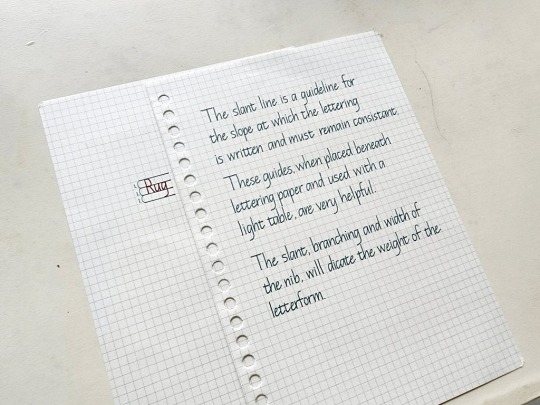 Rug
The slant line is a guideline for
the slope at which the lettering
is written and must remain consistant.
These guides, when placed beneath
lettering paper and used with a
light table, are very helpful.
The slant, branching and width of
the nib, will dicate the weight of the
letterform.